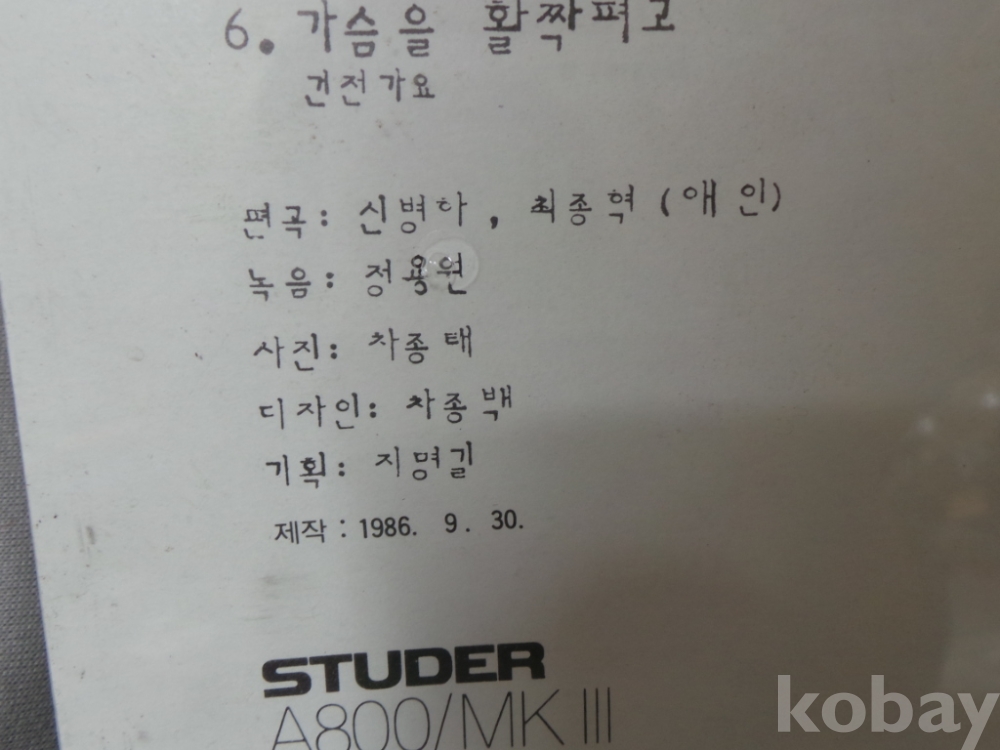 6. 가슴을 활짝펴고
건전가요
편곡: 신병하, 최종혁 (애인)
녹음: 정용원
사진: 차종태
디자인: 차종백
기획: 지명길
제작 : 1986. 9. 30.
STUDER
A800/MK III
kobay